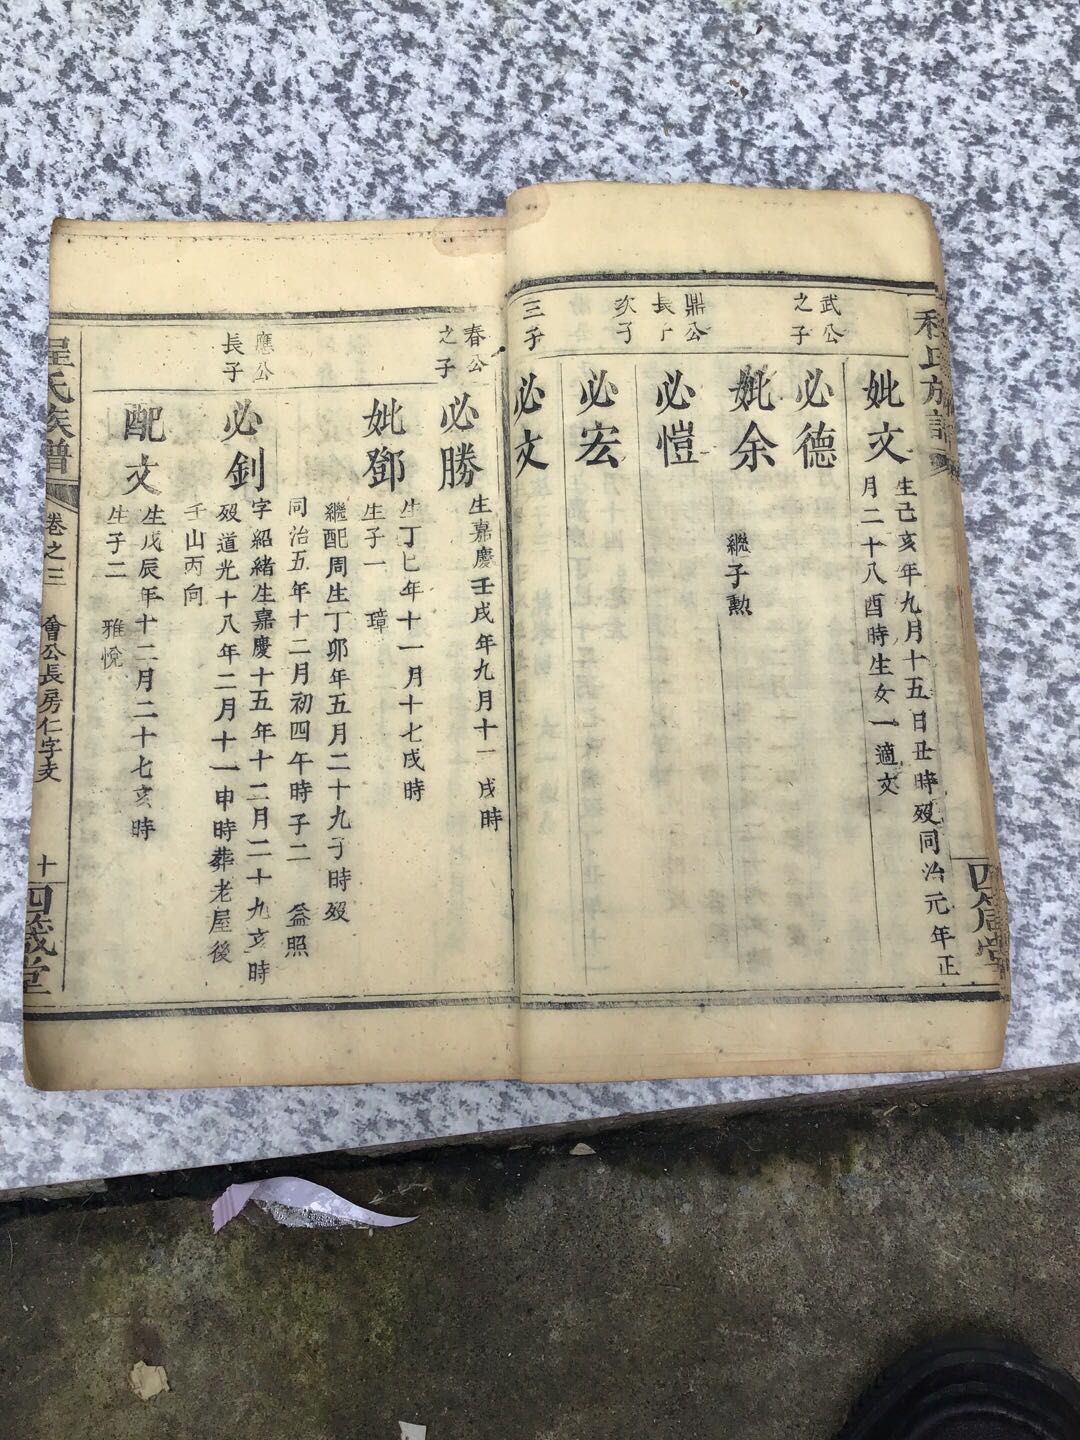 程氏族譜
四箴堂
妣文
生己亥年九月十五日丑時歿同治元年正
月二十八酉時生女一適文
武公
之子
必德
妣余
繼子勲
鼎公
長子
必愷
次子
必宏
三子
必文
春公
之子
必勝
生嘉慶壬戌年九月十一戌時
妣鄧
生丁巳年十一月十七戌時
生子一 璋
繼配周生丁卯年五月二十九子時歿
同治五年十二月初四午時子二 益照
應公
長子
必釗
字紹緒生嘉慶十五年十二月二十九亥時
歿道光十八年二月十一申時葬老屋後
壬山丙向
配文
生戊辰年十二月二十七亥時
生子二 雅悅
程氏族譜
卷之三
會公長房仁字支
十
四箴堂